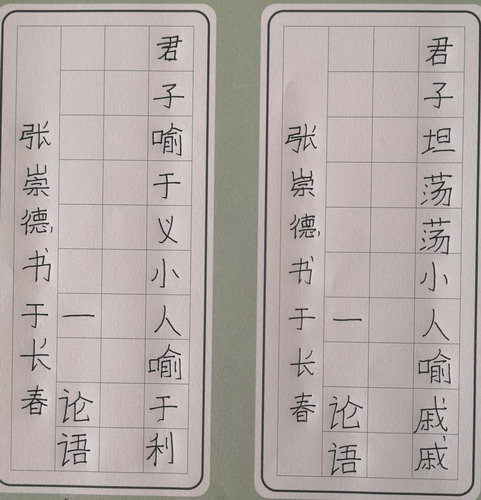 君子喻于义小人喻于利
一论语
张崇德书于长春
君子坦荡荡小人喻戚戚
一论语
张崇德书于长春